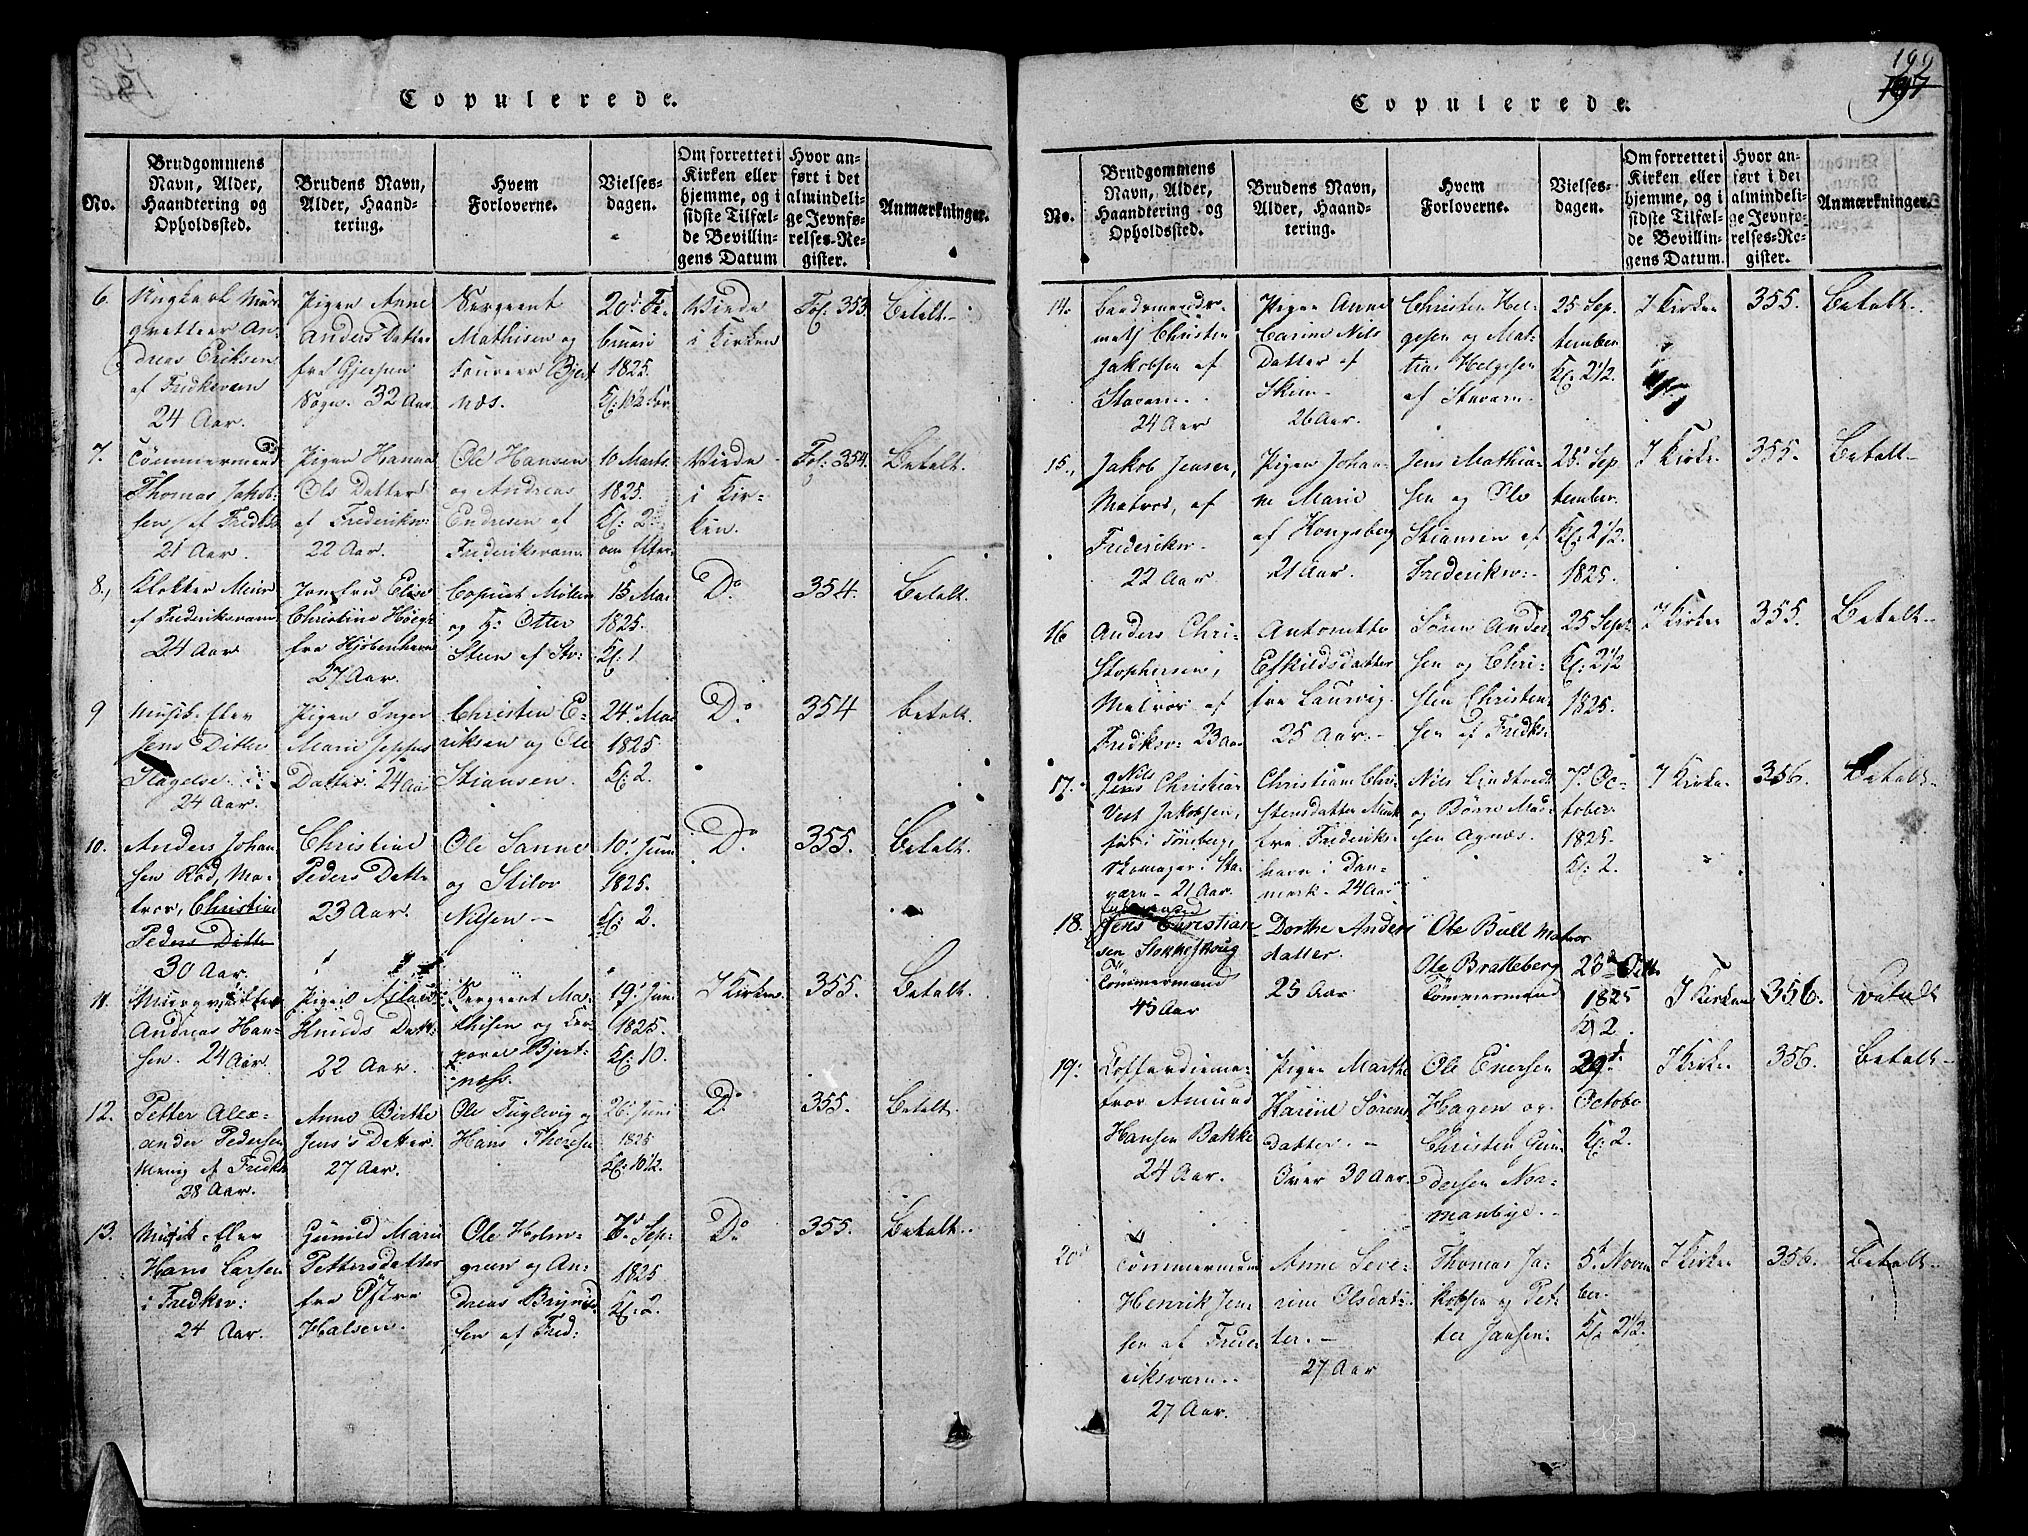 Copulerede.
No.
Brudgommens
Navn, Alder,
Haandtering og
Opholdssted.
Brudens Navn,
Alder, Haand-
tering.
Hvem
Forloverne.
Vielses-
dagen.
Om forrettet i
Kirken eller
hjemme, og i
sidste Tilfæl-
de Bevillin-
gens Datum
Hvor an-
ført i det
almindeli-
ge Jevnfø-
relses-Re-
gister.
Anmærkninger.
6.
Andreas Eriksen
24 Aar.
Pigen Anne
Anders Datter
Sogn. 32 Aar.
Sergeant
Mathisen og
Foureer Bjert
næs.
20d. Fe-
bruari
1825.
Kl: 10½ For
Viede
i Kirken
Fol. 353.
Betalt.
7.
Tømmermand
Thomas Jakob-
sen, af Fredks
21 Aar.
Pigen Hanna
Ols Datter
af Frederiksv:
22 Aar.
Ole Hansen
og Andreas
Endresen af
Frederiksværn.
10 Marts
1825.
Kl: 2
Viede
i Kir-
ken.
Fol: 354.
Betalt.
8.
af Frederiksværn
24 Aar
Jomfru Elise
Christine Høegh
fra Kjøbenhavn
27 Aar.
og H: Otter
Steen af St:
15 Mai
1825.
Kl: 1
Do
354.
Betalt.
9
Musik-Elev
Jens Ditlev
Slagelse.
24 Aar.
Pigen Inger
Marie Jeppes
Datter. 24 Aar
Christen E-
riksen og Ole
Stiansen.
24 Mai
1825.
Kl: 2.
Do
354
Betalt.
10.
Anders Johan-
sen Rød, Ma-
tros, Christine
Peders Datter
30 Aar.
Christine
Peders Datt-
23 Aar.
Ole Sanne
og Stilov
Nilsen
10 Juni
1825.
Kl 2.
Do
355.
Betalt.
11.
Andreas Han-
sen. 24 Aar.
Knuds Datt-
22 Aar.
Sergeant Ma-
thisen og Cor-
poral Bjert-
næss.
19 Juni
1825.
Kl: 10.
I Kirken.
355.
Betalt.
12.
Petter Alex-
ander Pedersen
Menig af Fredks
28 Aar.
Anne Birthe
Jens's Datter
27 Aar.
Ole Fuglevig og
Hans Thoresen
26 Juni
1825
Kl: 10½.
Do
355.
Betalt.
13.
Musik-Elev
Hans Larsen
i Fredksv:
24 Aar.
Gunild Marie
Pettersdatter
fra Østre
Halsen.
Ole Holm-
green og An-
dreas Brynild-
sen af Fred:
7d Sep:
1825
Kl: 2.
Do
355.
Betalt.
199
197
Copulerede.
No.
Brudgommens
Navn, Alder,
Haandtering og
Opholdssted.
Brudens Navn,
Alder, Haand-
tering.
Hvem
Forloverne.
Vielses-
dagen.
Om forrettet i
Kirken eller
hjemme, og i
sidste Tilfæl-
de Bevillin-
gens Datum.
Hvor an-
ført i det
almindeli-
ge Jevnfø-
relses-Re-
gister.
Anmærkninger.
14.
Christen
Jakobsen af
Stavern.
24 Aar
Pigen Anne
Carine Nils
Datter af
Skien.
26 Aar.
Christen Hel-
gesen og Mat-
tias Helgesen
af Stavern.
25 Sep-
tember
Kl: 2½.
I Kirken
355.
Betalt.
15.
Jakob Jensen,
Matros, af
Frederiksv.
22 Aar
Pigen Johan-
ne Marie
af Kongsberg
21 Aar.
Jens Mathia-
sen og Ole
Stiansen af
Frederiksv:
25 Sep-
tember.
Kl: 2½.
1825.
I Kirken
355.
Betalt
16
Anders Chri-
stophersen,
Matros af
Fredriksv: 23 Aar
Antonette
Eskildsdatter
fra Laurvig
25 Aar.
Søren Ander-
sen og Chri-
sten Christen-
sen af Fredks:
25 Sept
Kl: 2½
1825.
I Kirken
355.
Betalt
17.
Nils
Jens Christian
Vest Jakobsen,
født i Tønsberg,
Skomager, Sta-
værn - 21 Aar.
Christiane Chri-
stensdatter Munk
fra Frederiks-
havn i Dan-
mark. 24 Aar
Nils Lindtvedt
og Børre Mad-
sen Agnæs.
7d Oc-
tober
1825.
Kl: 2.
I Kirken
356.
Betalt
18.
Jens Christian-
sen Stokkeskoug
Tømmermand
45 Aar
Dorthe Anders
datter.
25 Aar
Ole Bull Matros
Ole Bratteberg
Tømmermand
23d Octb.
1825
Kl 2.
I Kirken
356.
Betalt
19.
Cofferdiema-
tros Amund
Hansen Bakke
24 Aar.
Pigen Marthe
Karine Sørens
Datter.
Over 30 Aar.
Ole Enersen
Hagen og
Christen Gun-
dersen Nor-
manbye.
29d
Octobr
Kl: 2.
I Kirken
356.
Betalt
20
Tømmermand
Henrik Jen-
sen af Frede-
riksværn.
27 Aar.
Anne Seve-
rine Olsdat-
ter.
27 Aar
Thomas Ja-
kobsen og Pet-
ter Jansen.
5t Novem
ber.
Kl: 2½.
I Kirken
356.
Betalt